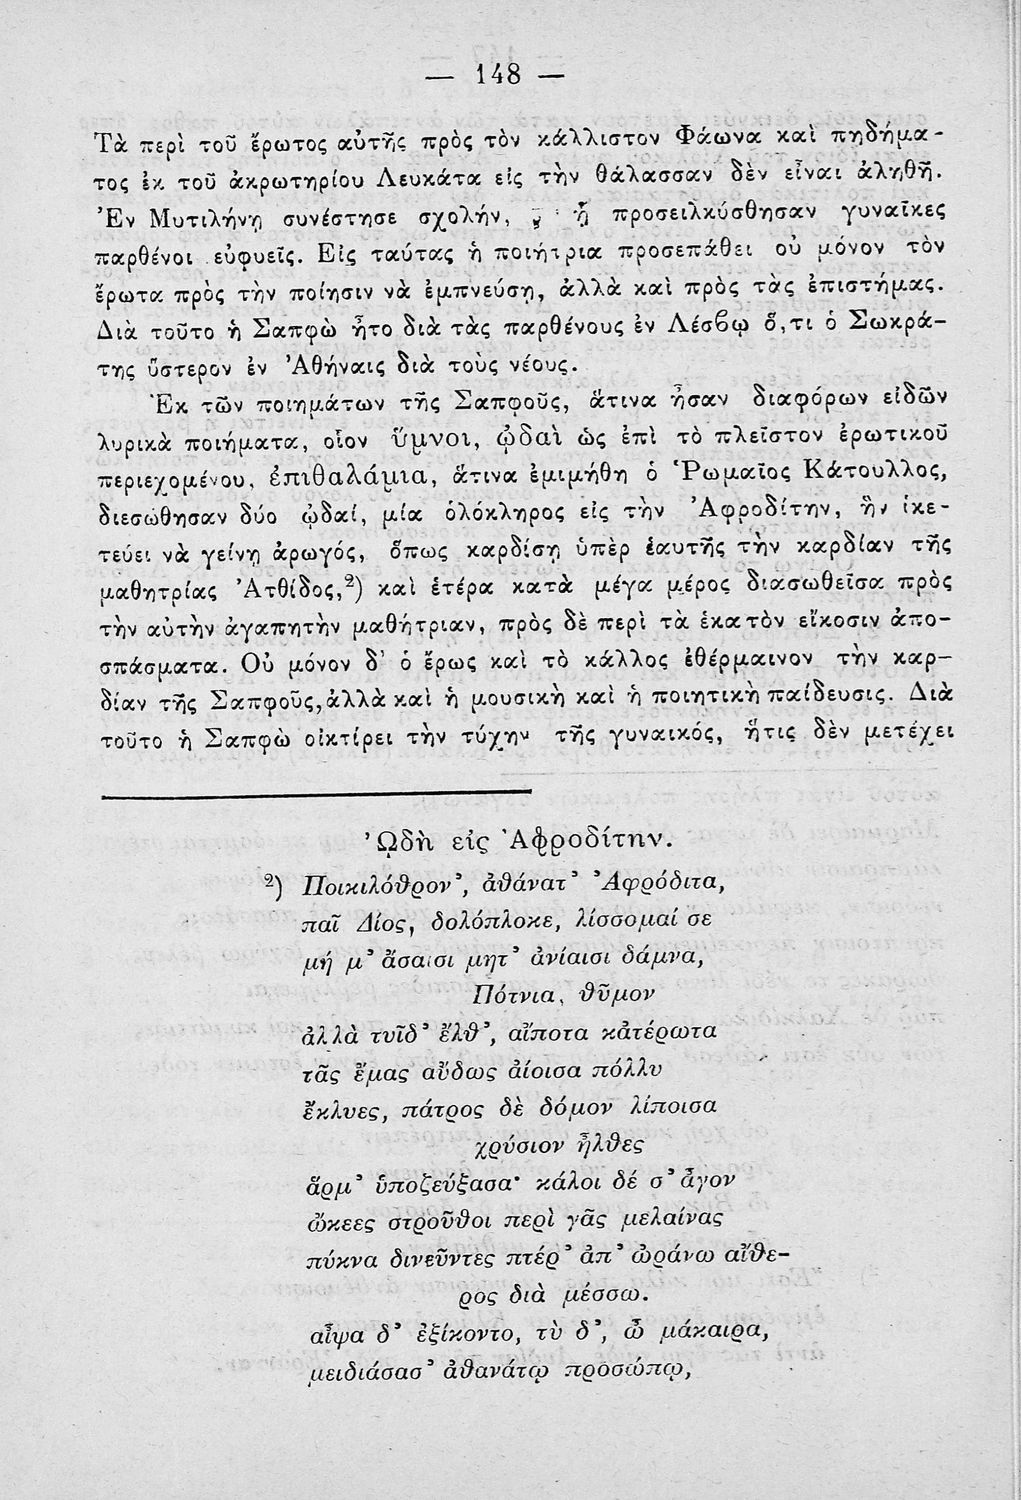 — 148 —
Τὰ περὶ τοῦ ἔρωτος αὐτῆς πρὸς τὸν κάλλιστον Φάωνα καὶ πηδήμα-
τος ἐκ τοῦ ἀκρωτηρίου Λευκάτα εἰς τὴν θάλασσαν δὲν εἶναι ἀληθῆ.
Ἐν Μυτιλήνῃ συνέστησε σχολήν, ᾗ προσειλκύσθησαν γυναῖκες
παρθένοι εὐφυεῖς. Εἰς ταύτας ἡ ποιήτρια προσεπάθει οὐ μόνον τὸν
ἔρωτα πρὸς τὴν ποίησιν νὰ ἐμπνεύσῃ, ἀλλὰ καὶ πρὸς τὰς ἐπιστήμας.
Διὰ τοῦτο ἡ Σαπφὼ ἦτο διὰ τὰς παρθένους ἐν Λέσβῳ ὅ,τι ὁ Σωκρά-
της ὕστερον ἐν Ἀθήναις διὰ τοὺς νέους.
Ἐκ τῶν ποιημάτων τῆς Σαπφοῦς, ἅτινα ἦσαν διαφόρων εἰδῶν
λυρικὰ ποιήματα, οἷον ὕμνοι, ᾠδαὶ ὡς ἐπὶ τὸ πλεῖστον ἐρωτικοῦ
περιεχομένου, ἐπιθαλάμια, ἅτινα ἐμιμήθη ὁ Ῥωμαῖος Κάτουλλος,
διεσώθησαν δύο ᾠδαί, μία ὁλόκληρος εἰς τὴν Ἀφροδίτην, ἣν ἱκε-
τεύει νὰ γείνῃ ἀρωγός, ὅπως καρδίσῃ ὑπὲρ ἑαυτῆς τὴν καρδίαν τῆς
μαθητρίας Ἀτθίδος,²) καὶ ἑτέρα κατὰ μέγα μέρος διασωθεῖσα πρὸς
τὴν αὐτὴν ἀγαπητὴν μαθήτριαν, πρὸς δὲ περὶ τὰ ἑκατὸν εἴκοσιν ἀπο-
σπάσματα. Οὐ μόνον δ' ὁ ἔρως καὶ τὸ κάλλος ἐθέρμαινον τὴν καρ-
δίαν τῆς Σαπφοῦς, ἀλλὰ καὶ ἡ μουσικὴ καὶ ἡ ποιητικὴ παίδευσις. Διὰ
τοῦτο ἡ Σαπφὼ οἰκτίρει τὴν τύχην τῆς γυναικός, ἥτις δὲν μετέχει
ᾨδὴ εἰς Ἀφροδίτην.
²) Ποικιλόθρον', ἀθάνατ' Ἀφρόδιτα,
παῖ Δίος, δολόπλοκε, λίσσομαί σε
μή μ' ἄσαισι μητ' ἀνίαισι δάμνα,
Πότνια, θῦμον
ἀλλὰ τυῖδ' ἔλθ', αἴποτα κἀτέρωτα
τᾶς ἔμας αὔδως ἀίοισα πόλλυ
ἔκλυες, πάτρος δὲ δόμον λίποισα
χρύσιον ἦλθες
ἄρμ' ὑποζεύξασα· κάλοι δέ σ' ἆγον
ὤκεες στροῦθοι περὶ γᾶς μελαίνας
πύκνα δινεῦντες πτέρ' ἀπ' ὠράνω αἴθε-
ρος διὰ μέσσω.
αἶψα δ' ἐξίκοντο, τὺ δ', ὦ μάκαιρα,
μειδιάσασ' ἀθανάτῳ προσώπῳ,